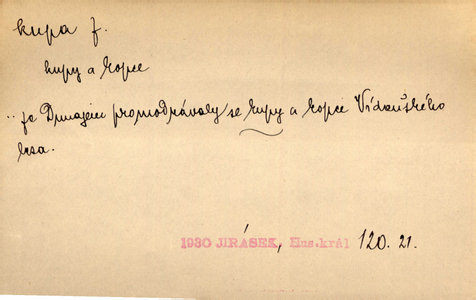 kupa f.
kupy a kopce
„ za Dunajem promodrávaly se kupy a kopce Vídeňského
lesa.
1930 JIRÁSEK, Hus.král 120. 21.